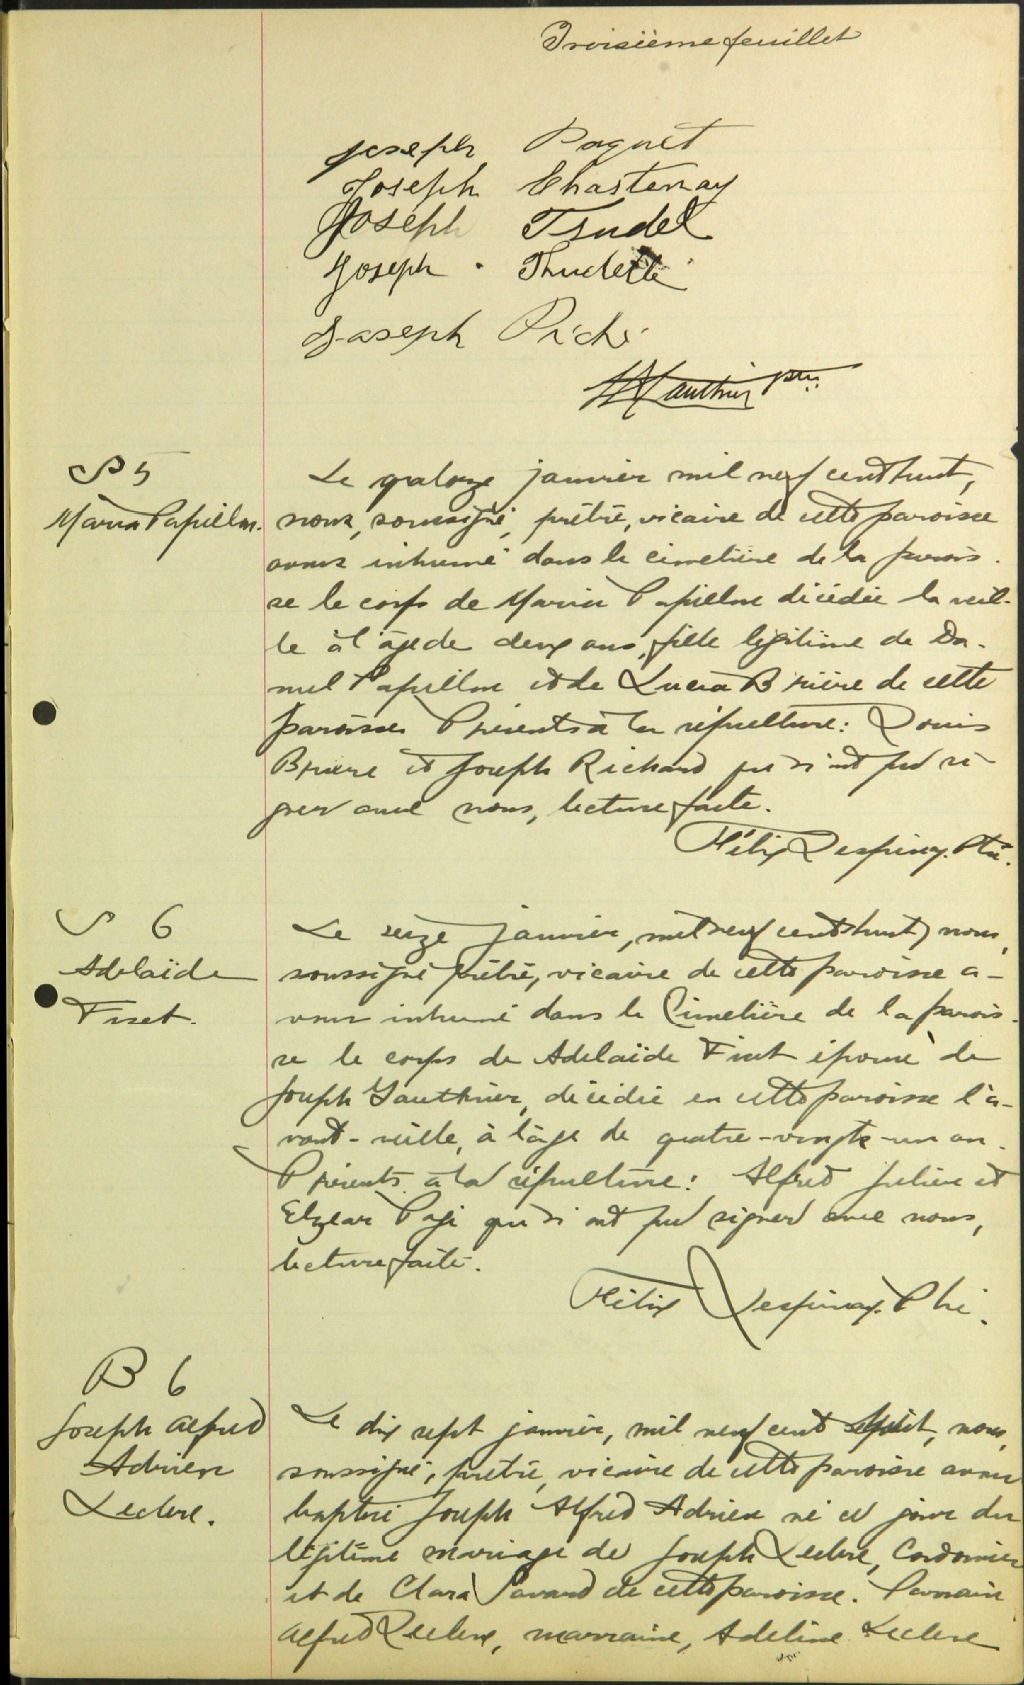 Troisième feuillet
Joseph Paquet
Joseph Chastenay
Joseph Trudel
Joseph Trudelle
Joseph Piché
Gauthier ptre
S 5
Maria Papillon.
Le quatorze janvier mil neuf cent huit,
nous, soussigné, prêtre, vicaire de cette paroisse
avons inhumé dans le cimetière de la parois-
se le corps de Maria Papillon décédée la veil-
le à l'âge de deux ans, fille légitime de Da-
niel Papillon et de Lucia Brière de cette
paroisse. Présents à la sépulture: Louis
Brière et Joseph Richard qui n'ont pu si-
gner avec nous, lecture faite.
Félix Despinay. Ptre.
S 6
Adelaïde
Fiset.
Le seize janvier, mil neuf cent huit, nous,
soussigné prêtre, vicaire de cette paroisse a-
vons inhumé dans le Cimetière de la parois-
se le corps de Adelaïde Fiset épouse de
Joseph Gauthier, décédée en cette paroisse l'a-
vant-veille, à l'âge de quatre-vingt-un an.
Présents à la sépulture: Alfred Julien et
Elzear Pagé qui n'ont pu signer avec nous,
lecture faite.
Félix Despinay. Ptre.
B 6
Joseph Alfred
Adrien
Leclerc.
Le dix sept janvier, mil neuf cent huit, nous,
soussigné, prêtre, vicaire de cette paroisse avons
baptisé Joseph Alfred Adrien né ce jour du
légitime mariage de Joseph Leclerc, Cordonnier
et de Clara Savard de cette paroisse. Parrain
Alfred Leclerc, marraine, Adeline Leclerc